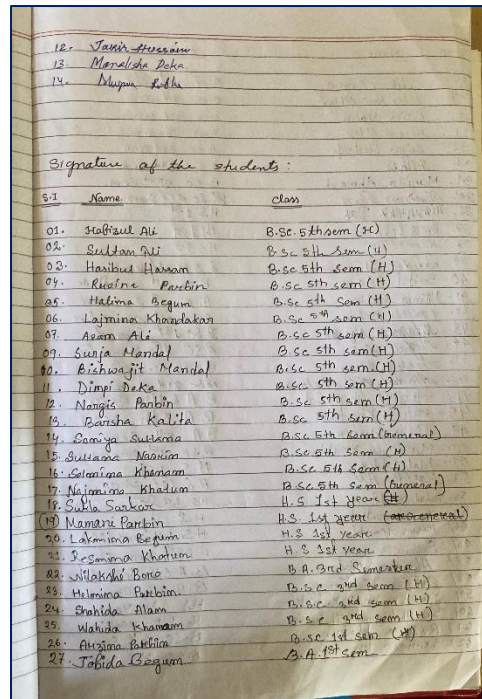 12. Jakir Hussain
13 Manalisha Deka
14.
Signature of the students :
S.I Name class
01. Hafizul Ali B.Sc. 5th sem (H)
02. Sultan Ali B.Sc 5th Sem (H)
03. Haribul Hassan B.Sc 5th sem (H)
04. Parbin B.Sc 5th sem (H)
05. Halima Begum B.Sc 5th Sem (H)
06. Lajmina Khandakar B.Sc 5th sem (H)
07. Azam Ali B.Sc 5th sem (H)
09. Surja Mandal B.Sc 5th sem (H)
10. Bishwajit Mandal B.Sc 5th sem (H)
11. Dimpi Deka B.Sc 5th sem (H)
12. Nargis Parbin B.Sc 5th sem (H)
13. Barsha Kalita B.Sc 5th sem (H)
14. Samiya Sultana B.Sc 5th Sem (General)
15. Sultana Nasrin B.Sc 5th sem (H)
16. Selmina Khanam B.Sc 5th Sem (H)
17. Najmina Khatun B.Sc 5th Sem (General)
18. Sukla Sarkar H.S 1st year
19 Mamani Parbin H.S. 1st year
20. Lakmina Begum H.S 1st year
21. Resmina Khatun H.S 1st Year
22. Nilakshi Boro B.A. 3rd Semester
23. Helmina Parbin B.Sc 3rd sem (H)
24. Shahida Alam B.Sc 3rd sem (H)
25. Wahida Khanam B.Sc 3rd sem (H)
26. Parbin B.Sc 1st sem (H)
27. Jobida Begum B.A. 1st sem